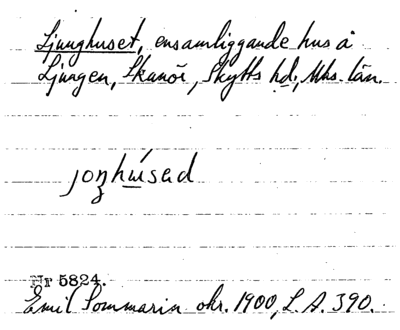 Ljunghuset, ensamliggande hus å
Ljungen, Skanör, Skytts hd., Mhs. län.
joŋhúsəd
Nr 5824.
Emil Sommarin okr. 1900, L.A. 390.